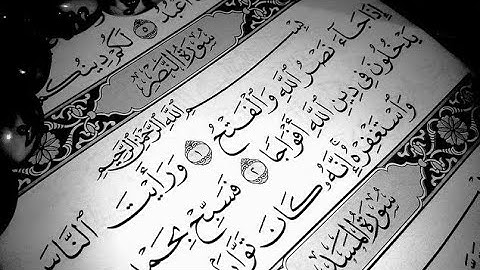 أَعْبُدُ ٥ لَكُمْ دِينُكُ
سُورَةُ النَّصْرِ
بِسْمِ ٱللَّهِ ٱلرَّحْمَٰنِ ٱلرَّحِيمِ
إِذَا جَآءَ نَصْرُ ٱللَّهِ وَٱلْفَتْحُ ١ وَرَأَيْتَ ٱلنَّاسَ
يَدْخُلُونَ فِي دِينِ ٱللَّهِ أَفْوَاجًا ٢ فَسَبِّحْ بِحَمْ
وَٱسْتَغْفِرْهُ إِنَّهُۥ كَانَ تَوَّا
سُورَةُ المَسَد